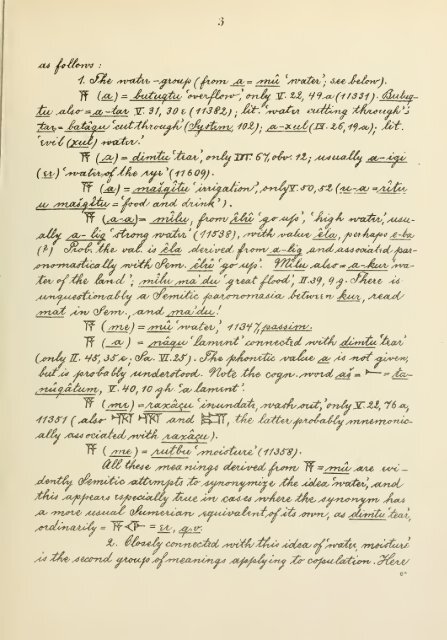 3
as follows:
1. The water-group (from a = mû 'water'; see below).
𒀀 (a) = butuqtu 'overflow', only V. 22, 49.a (11331). Butuq-
tu also = a-tar V. 31, 30 e (11382); lit. 'water cutting through';
tar = batâqu 'cut through' (System, 102); a-xul (IV. 26, 19a); lit.
'evil (xul) water.'
𒀀 (a) = dimtu 'tear', only obv. 12; usually a-igi
(er) 'water of the eye' (11609).
𒀀 (a) = mašqîtu 'irrigation', only V. 50, 52 (u-a = rîtu
u mašqîtu = 'food and drink').
𒀀 (a-a) = mîlu, from êlû 'go up', 'high water', usu-
ally a-lig 'strong water' (11538), with value êla, perhaps e-ba
(?) Prob. the val. is êla derived from a-lig and associated par-
onomastically with Sem. êlû 'go up'. Mîlu also = a-kur 'wa-
ter of the land'; mîlu ma'du 'great flood', II. 39, 9 g. There is
unquestionably a Semitic paronomasia between kur, read
mat in Sem., and ma'du!
𒀀 (me) = mû 'water,' 11347, passim.
𒀀 (a) = nâqu 'lament' connected with dimtu 'tear'
(only II. 45, 35 e; Sa. VI. 25). The phonetic value a is not given,
but is probably understood. Note the cogn. word aš = 𒀸 = ta-
nûqâtum, V. 40, 10 gh. 'a lament'.
𒀀 (me) = raxâçu 'inundate, wash out,' only V. 22, 76 a,
11351 (also and , the latter probably mnemonic-
ally associated with raxâçu).
𒀀 (me) = rutbu 'moisture' (11358).
All these meanings derived from 𒀀 = mû are evi-
dently Semitic attempts to synonymize the idea 'water', and
this appears especially true in cases where the synonym has
a more usual Sumerian equivalent of its own, as dimtu 'tear',
ordinarily = 𒀀𒅆 = er, q.v.
2. Closely connected with this idea of 'water, moisture'
is the second group of meanings applying to copulation. Here